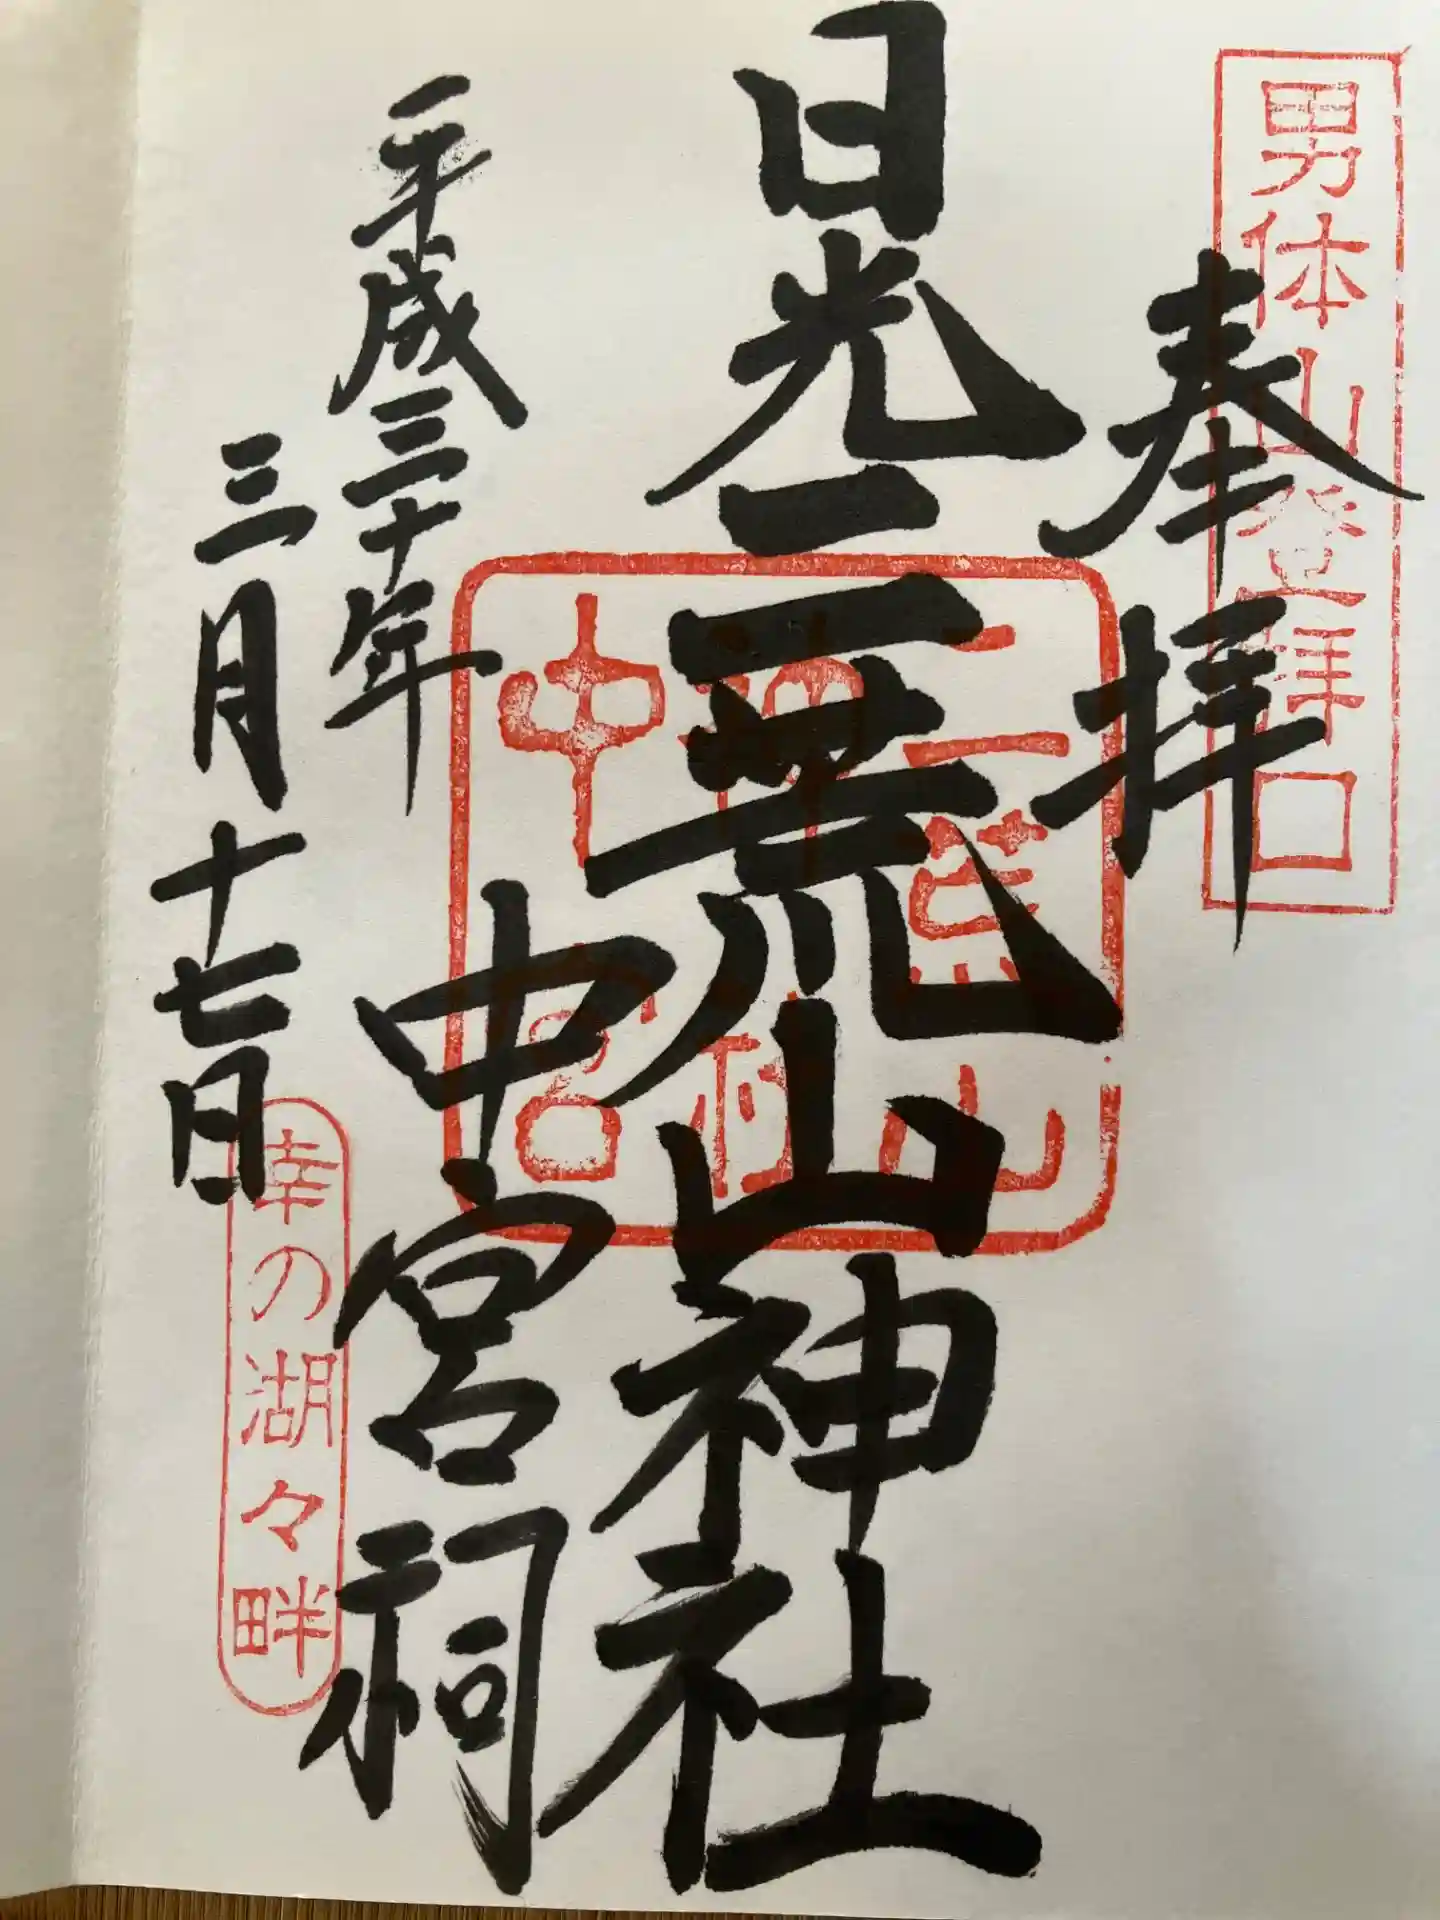 男体山登拝口
奉拝
日光二荒山神社
中宮祠
二荒山
神社
中宮
平成三十年
三月十七日
幸の湖々畔